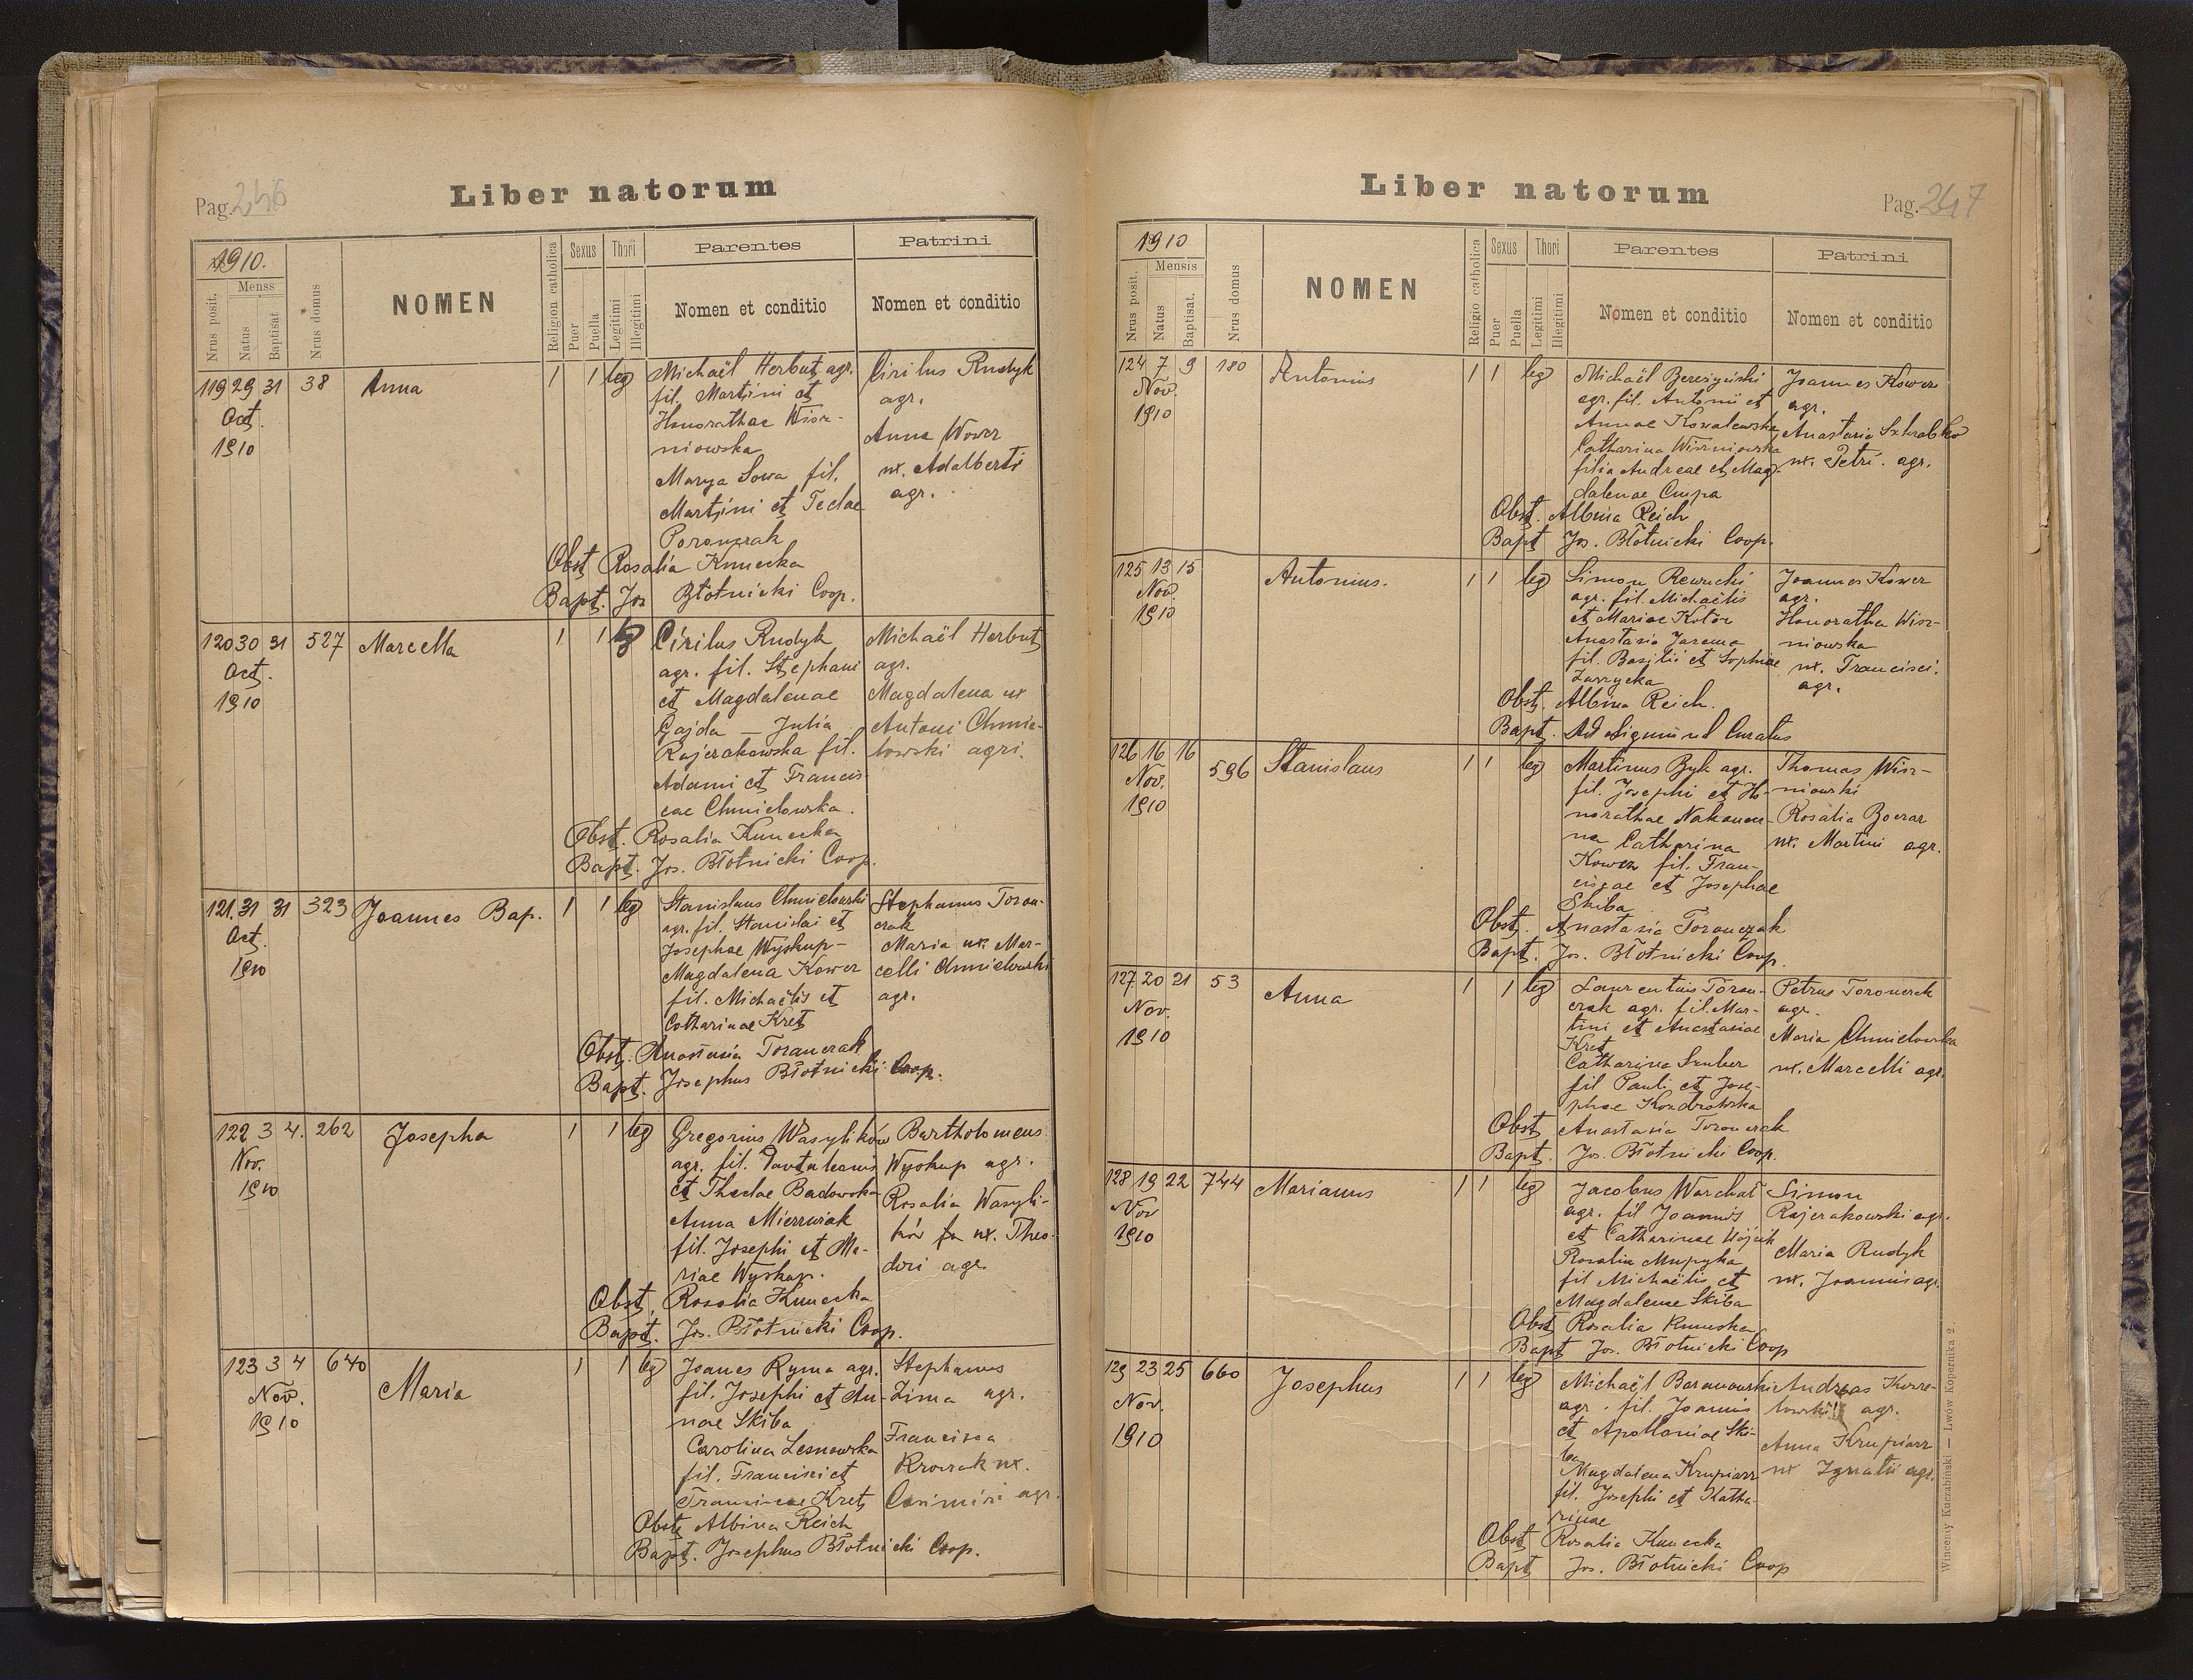 Pag. 246
Liber natorum
1910.
Nrus posit.
Menss
Natus
Baptisat
Nrus domus
NOMEN
Religion catholica
Sexus
Puer
Puella
Thori
Legitimi
Illegitimi
Parentes
Nomen et conditio
Patrini
Nomen et conditio
119 29 31 38 Anna 1 1 leg
Oct.
1910
Michaël Herbut agr.
fil. Martini et
Honorathae Wisz-
niowska
Marya Sowa fil.
Martini et Teclae
Toronczak
Cirilus Rudyk
agr.
Anna Wower
ux. Adalberti
agr.
Obst Rosalia Kunecka
Bapt. Jos Błotnicki Coop.
120 30 31 527 Marcella 1 1 leg
Oct.
1910
Cirilus Rudyk
agr. fil. Stephani
et Magdalenae
Gajda — Julia
Rajzrakowska fil.
Adami et Francis-
cae Chmielowska.
Michaël Herbut
agr.
Magdalena ux
Antoni Chmie-
lowski agri.
Obst. Rosalia Kunecka
Bapt. Jos. Błotnicki Coop.
121. 31 31 323 Joannes Bap. 1 1 leg
Oct.
1910
Stanislaus Chmielowski
agr. fil. Stanislai et
Josephae Wyskup-
Magdalena Kower
fil. Michaëlis et
Catharinae Kret
Stephanus Toron-
czak
Maria ux. Mar-
celli Chmielowski
agr.
Obst. Anastasia Toronczak
Bapt. Josephus Błotnicki Coop.
122 3 4. 262 Josepha 1 1 leg
Nov.
1910
Gregorius Wasylików
agr. fil. Pantaleonis
et Theclae Badowska
Anna Mierzwiak
fil. Josephi et Ma-
riae Wyskup.
Bartholomeus
Wyskup agr.
Rosalia Wasyli-
ków ux. Theo-
dori agr
Obst. Rosalia Kunecka
Bapt. Jos. Błotnicki Coop.
123 3 4 640 Maria 1 1 leg
Nov.
1910
Joanes Ryma agr.
fil. Josephi et An-
nae Skiba
Carolina Lesnowska
fil. Francisci et
Franciscae Kret
Stephanus
Zima agr.
Francisca
Krowak ux.
Casimiri agr.
Obst Albina Reich
Bapt. Josephus Błotnicki Coop.
Liber natorum
Pag. 247
1910
Nrus posit.
Mensis
Natus
Baptisat.
Nrus domus
NOMEN
Religio catholica
Sexus
Puer
Puella
Thori
Legitimi
Illegitimi
Parentes
Nomen et conditio
Patrini
Nomen et conditio
124 7 9 180 Antonius 1 1 leg
Nov.
1910
Michaël Berezyński
agr. fil. Antonii et
Annae Kowalewska
Catharina Wiszniowska
filia Andreae et Mag-
dalenae Czupa
Joannes Kower
agr.
Anastasia Szkrabko
ux. Petri. agr.
Obst. Albina Reich
Bapt Jos. Błotnicki Coop.
125 13 15 Antonius. 1 1 leg
Nov.
1910
Simon Rewucki
agr. fil. Michaëlis
et Mariae Kotór
Anastasia Jarema
fil. Basilii et Sophiae
Zarzycka
Joannes Kower
agr.
Honoratha Wisz-
niowska
ux. Francisci.
agr.
Obst. Albina Reich.
Bapt. Ad Sigmund Curatus
126 16 16 596 Stanislaus 1 1 leg
Nov.
1910
Martinus Byk agr.
fil. Josephi et Ho-
norathae Nakonecz-
na Catharina
Kower fil. Fran-
ciscae et Josephae
Skiba
Thomas Wisz-
niowski
Rosalia Boczar
ux. Martini agr.
Obst. Anastasia Toronczak
Bapt. Jos. Błotnicki Coop.
127 20 21 53 Anna 1 1 leg
Nov.
1910
Laurentius Toron-
czak agr. fil. Mar-
tini et Anastasiae
Kret
Catharina Szuber
fil Pauli et Jose-
phae Kondrowska
Petrus Toronczak
agr.
Maria Chmielowska
ux. Marcelli agr.
Obst Anastasia Toronczak
Bapt. Jos. Błotnicki Coop.
128 19 22 744 Marianus 1 1 leg
Nov
1910
Jacobus Warchał
agr. fil Joannis
et Catharinae Wójcik
Rosalia Mupyka
fil Michaëlis et
Magdalenae Skiba
Simon
Rajzrakowski agr.
Maria Rudyk
ux. Joannis agr.
Obst Rosalia Kunecka
Bapt Jos. Błotnicki Coop
129 23 25 660 Josephus 1 1 leg
Nov.
1910
Michaël Baranowski
agr. fil. Joannis
et Apolloniae Ski-
ba
Magdalena Krupiarz
fil. Josephi et Katha-
rinae
Andreas
agr.
Anna Krupiarz
ux Ignatii agr.
Obst Rosalia Kunecka
Bapt Jos. Błotnicki Coop
Wincenty Kuczabiński — Lwów Kopernika 2